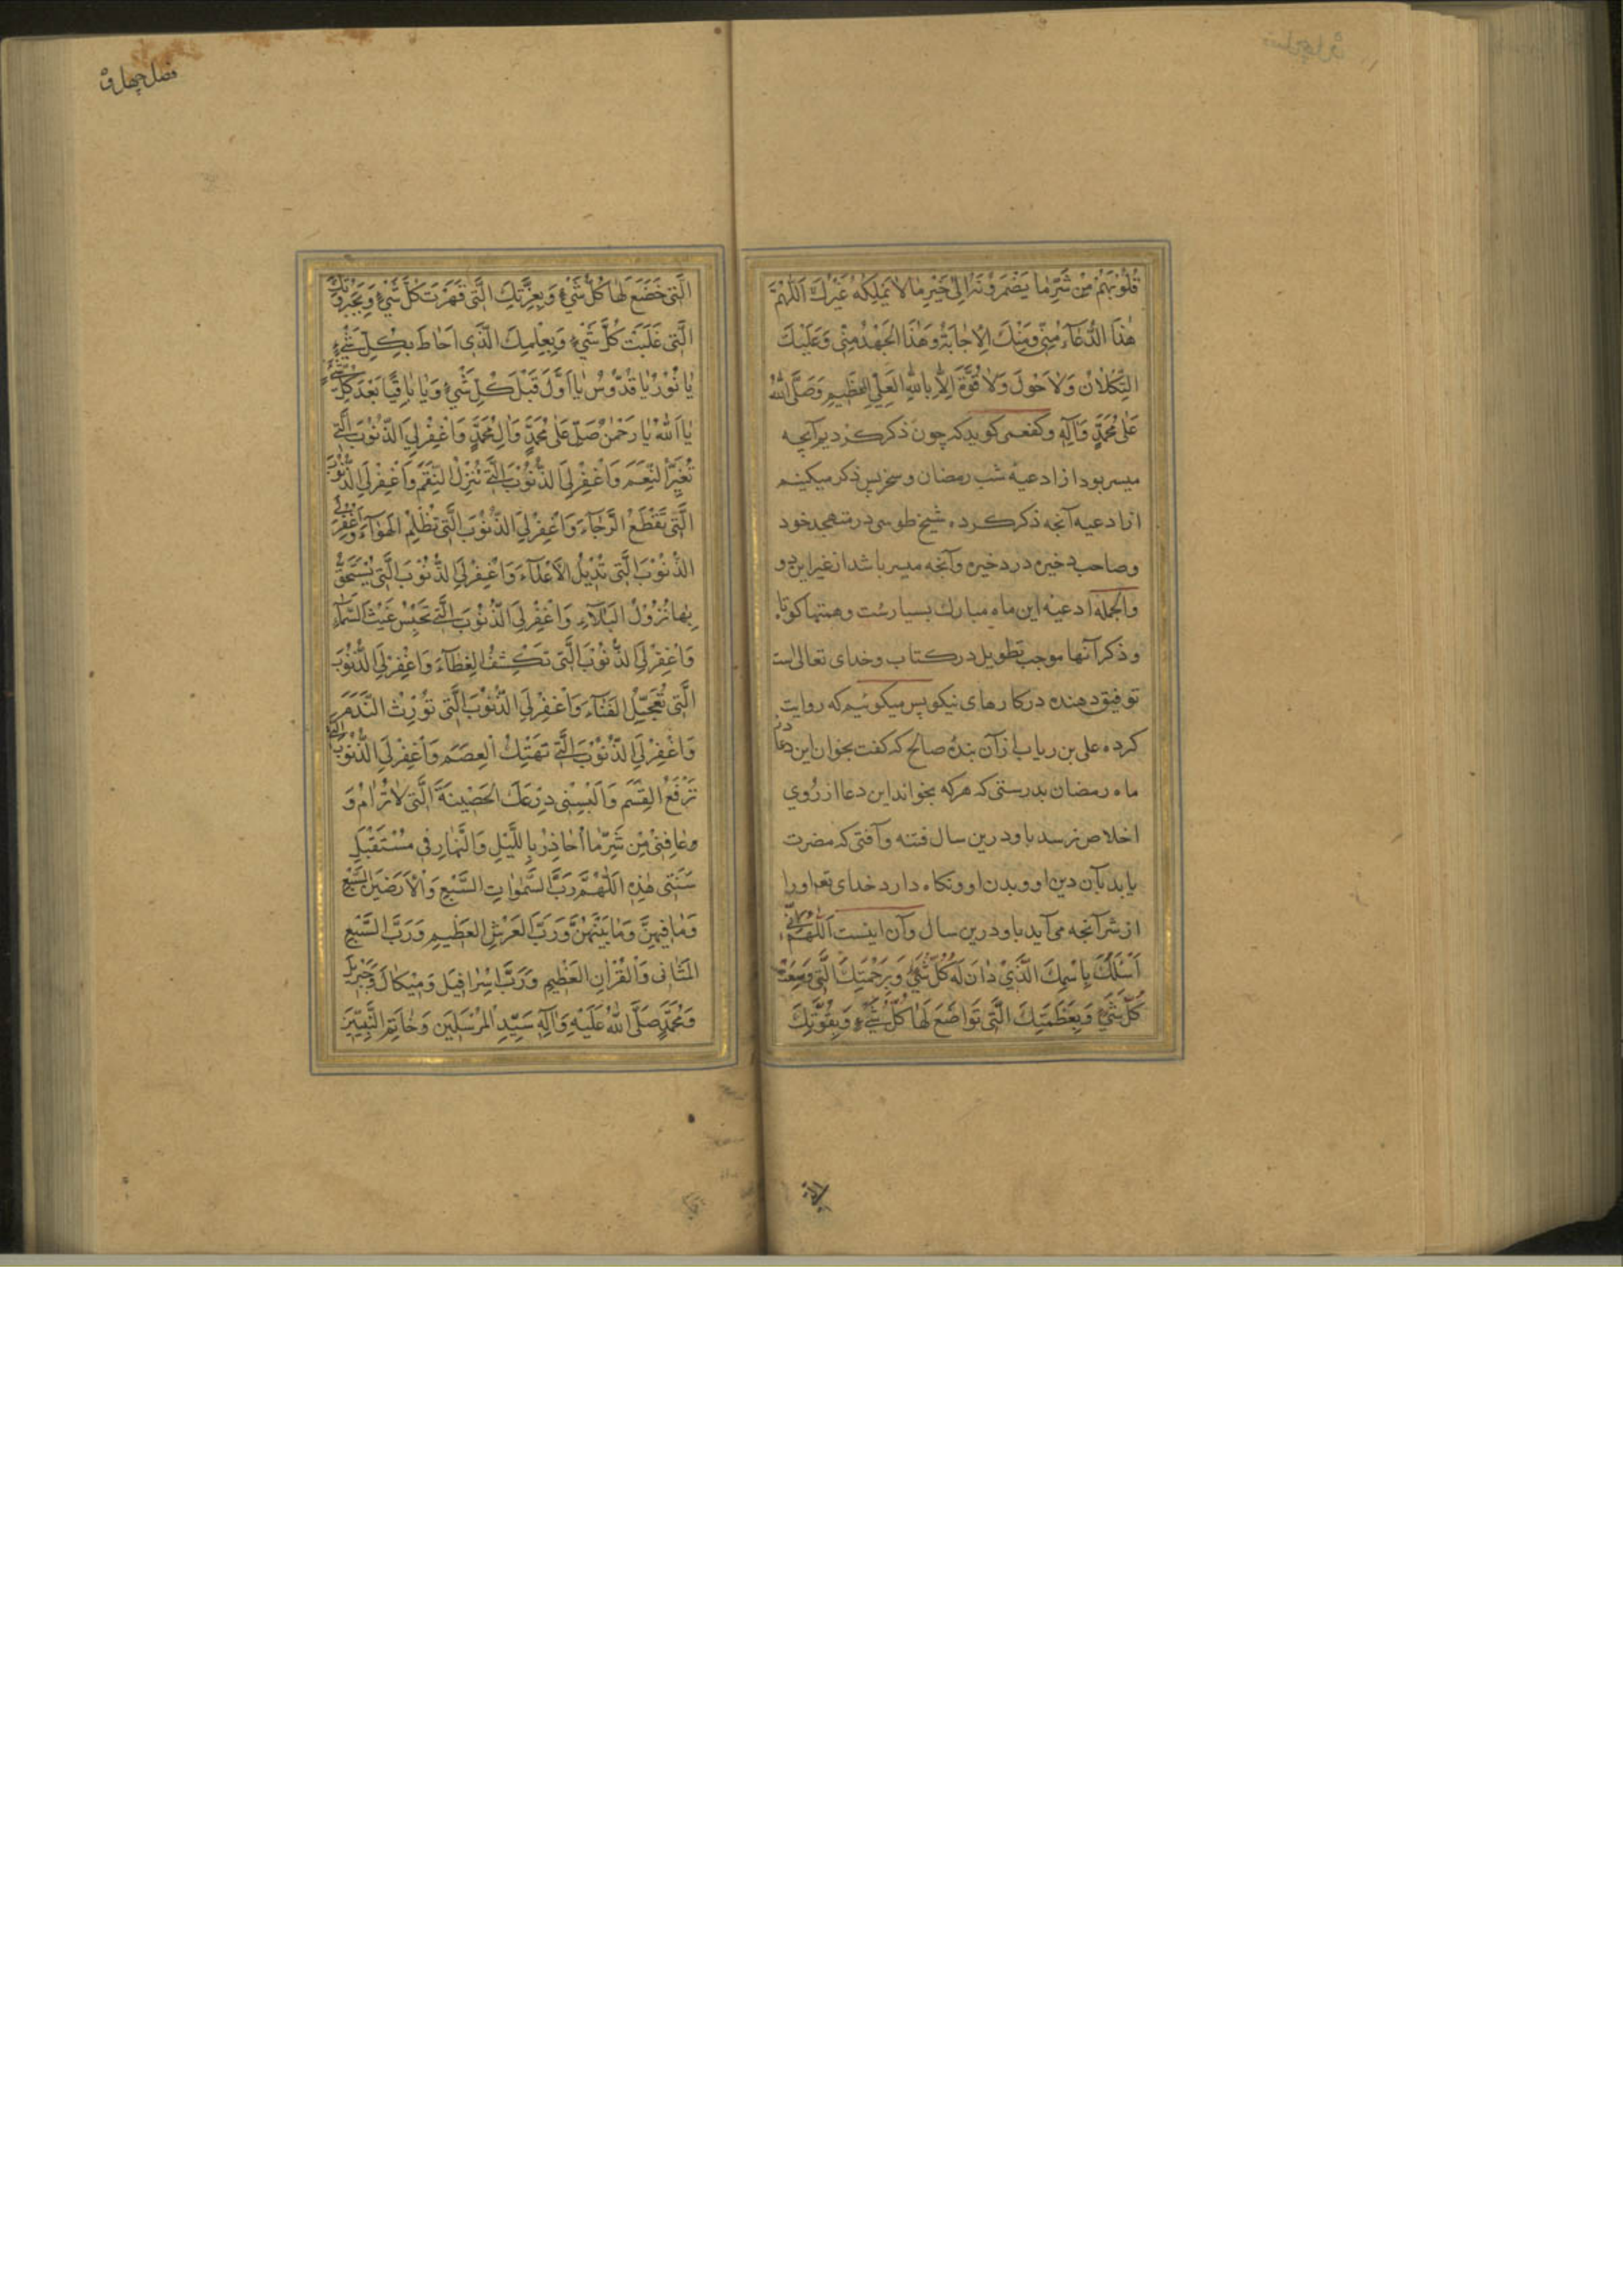 قُلُوبَهُمْ مِنْ شَرِّ مَا يَضْمُرُونَهُ اِلَى خَيْرِ مَا لَا يَمْلِكُهُ غَيْرُكَ اَللّٰهُمَّ
هٰذَا الدُّعَآءُ مِنِّي وَمِنْكَ الْاِجَابَةُ وَهٰذَا الْجَهْدُ مِنِّي وَعَلَيْكَ
التِّكْلَانُ وَلَا حَوْلَ وَلَا قُوَّةَ اِلَّا بِاللهِ الْعَلِيِّ الْعَظِيمِ وَصَلَّى اللهُ
عَلٰى مُحَمَّدٍ وَآلِهِ وكفعمی کوید که چون ذکر کردیم آنچه
میسر بود از ادعیه شب رمضان و سحر پس ذکر میکنیم
از ادعیه آنچه ذکر کرده شیخ طوسی در متهجد خود
وصاحب ذخیره در ذخیره وآنچه میسر باشد از غیر این دو
والجمله ادعیه این ماه مبارك بسیارست وهمتها کوتاه
و ذکر آنها موجب تطویل در کتاب وخدای تعالی است
توفیق دهنده در کارهای نیکو پس میکوئیم که روایت
کرده علی بن ریاب از آن بنده صالح که کفت بخوان این دعا در
ماه رمضان بدرستی که هر که بخواند این دعا از روی
اخلاص نرسد باو درین سال فتنه وآفتی که مضرت
یابد بآن دین او وبدن او ونکاه دارد خدای تع اورا
از شر آنچه می آید باو درین سال وآن اینست اَللّٰهُمَّ اِنِّي
اَسْئَلُكَ بِاسْمِكَ الَّذِي دَانَ لَهُ كُلُّ شَيْءٍ وَبِرَحْمَتِكَ الَّتِي وَسِعَتْ
كُلَّ شَيْءٍ وَبِعَظَمَتِكَ الَّتِي تَوَاضَعَ لَهَا كُلُّ شَيْءٍ وَبِقُوَّتِكَ
الَّتِي
الَّتِي خَضَعَ لَهَا كُلُّ شَيْءٍ وَبِعِزَّتِكَ الَّتِي قَهَرَتْ كُلَّ شَيْءٍ وَبِجَبَرُوتِكَ
الَّتِي غَلَبَتْ كُلَّ شَيْءٍ وَبِعِلْمِكَ الَّذِي اَحَاطَ بِكُلِّ شَيْءٍ
يَا نُورُ يَا قُدُّوسُ يَا اَوَّلَ قَبْلَ كُلِّ شَيْءٍ وَيَا بَاقِيًا بَعْدَ كُلِّ شَيْءٍ
يَا اَللهُ يَا رَحْمٰنُ صَلِّ عَلٰى مُحَمَّدٍ وَآلِ مُحَمَّدٍ وَاغْفِرْ لِيَ الذُّنُوبَ الَّتِي
تُغَيِّرُ النِّعَمَ وَاغْفِرْ لِيَ الذُّنُوبَ الَّتِي تُنْزِلُ النِّقَمَ وَاغْفِرْ لِيَ الذُّنُوبَ
الَّتِي تَقْطَعُ الرَّجَآءَ وَاغْفِرْ لِيَ الذُّنُوبَ الَّتِي تُظْلِمُ الْهَوَآءَ وَاغْفِرْ لِيَ
الذُّنُوبَ الَّتِي تُدِيلُ الْاَعْدَآءَ وَاغْفِرْ لِيَ الذُّنُوبَ الَّتِي يُسْتَحَقُّ
بِهَا نُزُولُ الْبَلَآءِ وَاغْفِرْ لِيَ الذُّنُوبَ الَّتِي تَحْبِسُ غَيْثَ السَّمَآءِ
وَاغْفِرْ لِيَ الذُّنُوبَ الَّتِي تَكْشِفُ الْغِطَآءَ وَاغْفِرْ لِيَ الذُّنُوبَ
الَّتِي تُعَجِّلُ الْفَنَآءَ وَاغْفِرْ لِيَ الذُّنُوبَ الَّتِي تُورِثُ النَّدَمَ
وَاغْفِرْ لِيَ الذُّنُوبَ الَّتِي تَهْتِكُ الْعِصَمَ وَاغْفِرْ لِيَ الذُّنُوبَ الَّتِي
تَرْفَعُ الْقِسَمَ وَاَلْبِسْنِي دِرْعَكَ الْحَصِينَةَ الَّتِي لَا تُرَامُ وَ
وعَافِنِي مِنْ شَرِّ مَا اُحَاذِرُ بِاللَّيْلِ وَالنَّهَارِ فِي مُسْتَقْبَلِ
سَنَتِي هٰذِهِ اَللّٰهُمَّ رَبَّ السَّمٰوَاتِ السَّبْعِ وَالْاَرَضِينَ السَّبْعِ
وَمَا فِيهِنَّ وَمَا بَيْنَهُنَّ وَرَبَّ الْعَرْشِ الْعَظِيمِ وَرَبَّ السَّبْعِ
الْمَثَانِي وَالْقُرْآنِ الْعَظِيمِ وَرَبَّ اِسْرَافِيلَ وَمِيكَالَ وَجَبْرَئِيلَ
وَمُحَمَّدٍ صَلَّى اللهُ عَلَيْهِ وَآلِهِ سَيِّدِ الْمُرْسَلِينَ وَخَاتَمِ النَّبِيِّينَ